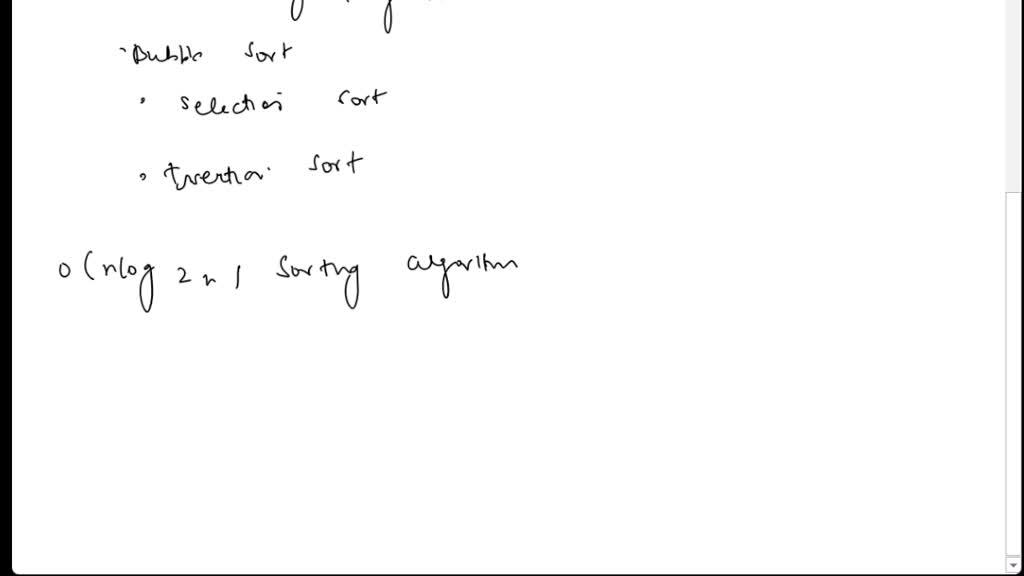 · Bubble sort
· selection sort
· Insertion sort
O(nlog 2 n) sorting algorithm